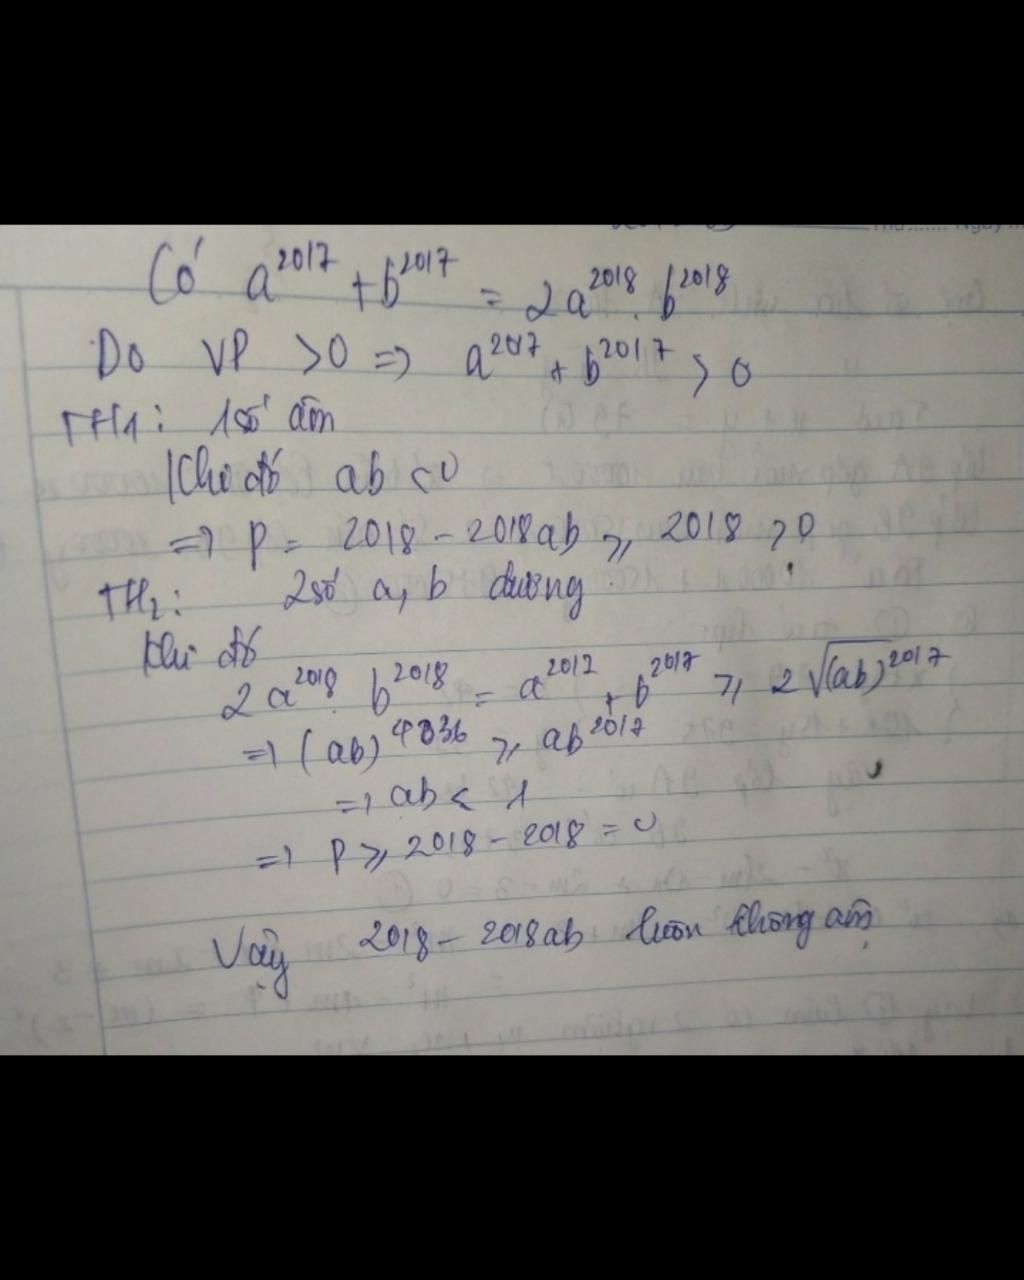 Có a^2017 + b^2017 = 2a^2018 . b^2018
Do VP > 0 => a^2017 + b^2017 > 0
TH1: 1 số âm
Khi đó ab < 0
=> P = 2018 - 2018ab ≥ 2018 > 0
TH2: 2 số a, b dương
Khi đó
2a^2018 . b^2018 = a^2017 + b^2017 ≥ 2√(ab)^2017
=> (ab)^4036 ≥ ab^2017
=> ab < 1
=> P ≥ 2018 - 2018 = 0
Vậy 2018 - 2018ab luôn không âm